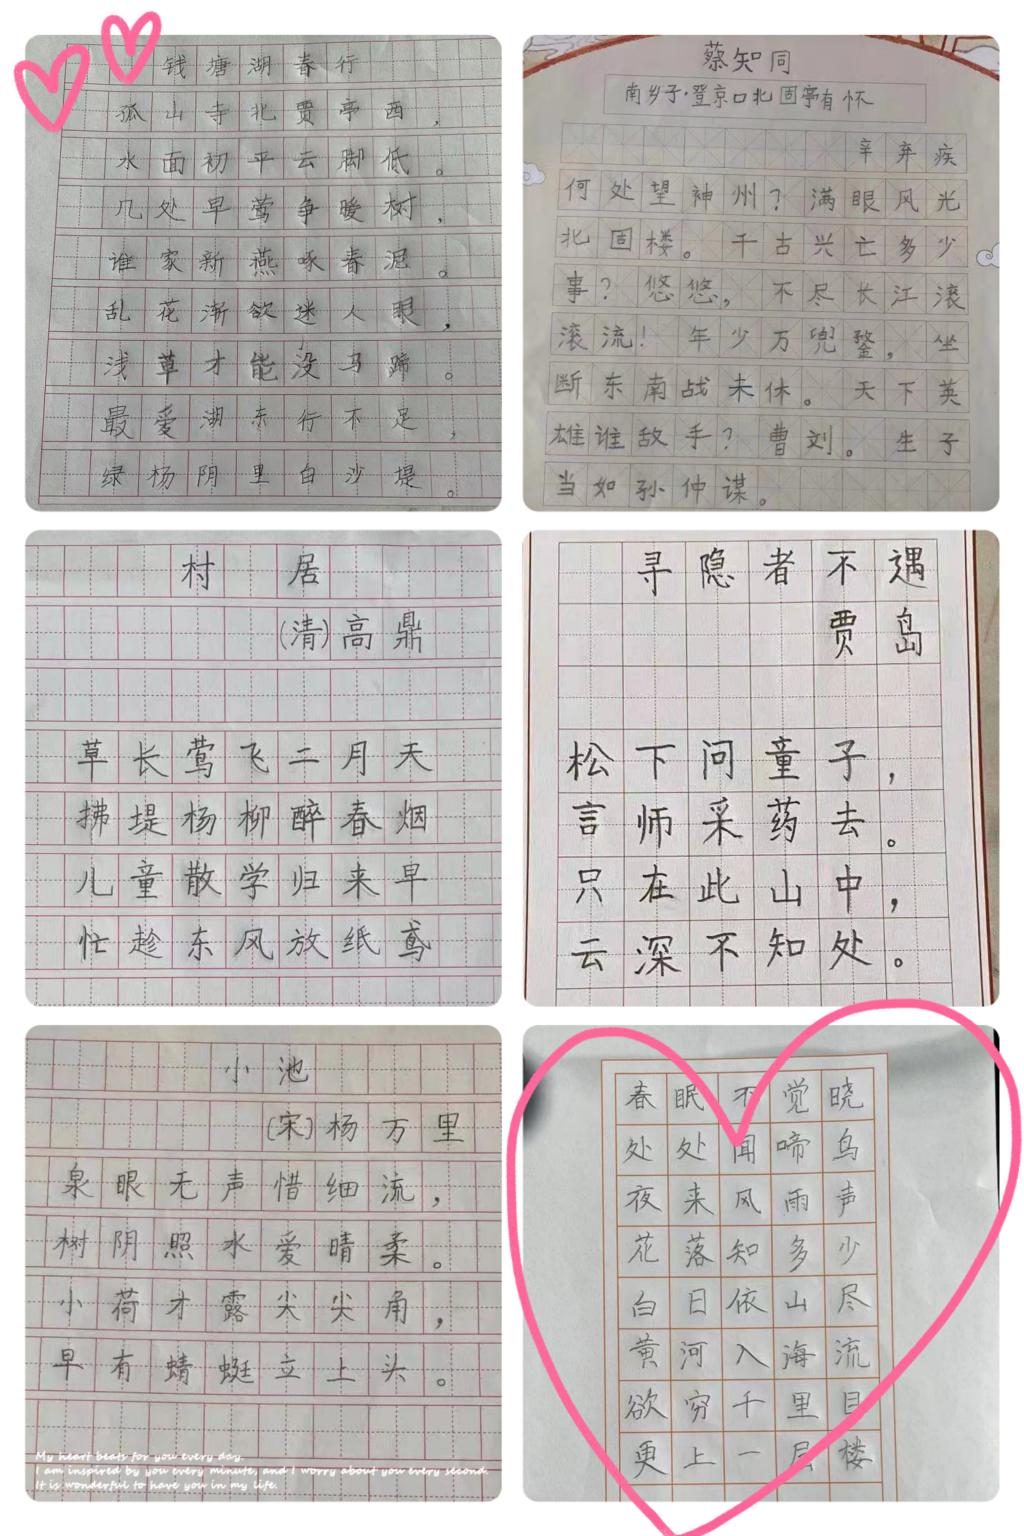 钱塘湖春行
孤山寺北贾亭西，
水面初平云脚低。
几处早莺争暖树，
谁家新燕啄春泥。
乱花渐欲迷人眼，
浅草才能没马蹄。
最爱湖东行不足，
绿杨阴里白沙堤。
蔡知同
南乡子·登京口北固亭有怀
辛弃疾
何处望神州？满眼风光
北固楼。千古兴亡多少
事？悠悠，不尽长江滚
滚流！年少万兜鍪，坐
断东南战未休。天下英
雄谁敌手？曹刘。生子
当如孙仲谋。
村居
(清)高鼎
草长莺飞二月天
拂堤杨柳醉春烟
儿童散学归来早
忙趁东风放纸鸢
寻隐者不遇
贾岛
松下问童子，
言师采药去。
只在此山中，
云深不知处。
小池
(宋)杨万里
泉眼无声惜细流，
树阴照水爱晴柔。
小荷才露尖尖角，
早有蜻蜓立上头。
My heart beats for you every day.
I am inspired by you every minute, and I worry about you every second.
It is wonderful to have you in my life.
春眠不觉晓
处处闻啼鸟
夜来风雨声
花落知多少
白日依山尽
黄河入海流
欲穷千里目
更上一层楼